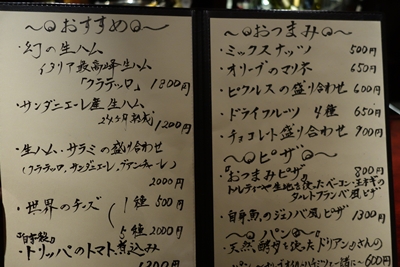 おすすめ
・幻の生ハム
イタリア最高峰生ハム
「クラテッロ」 1800円
・サンダニエーレ産生ハム
24ヶ月熟成 1200円
・生ハム・サラミの盛り合わせ
(クラテッロ、サンダニエーレ、
2000円
・世界のチーズ 1種 500円
5種 2000円
『自家製』
・トリッパのトマト煮込み
おつまみ
・ミックスナッツ 500円
・オリーブのマリネ 650円
・ピクルスの盛り合わせ 600円
・ドライフルーツ 4種 650円
・チョコレート盛り合わせ 900円
ピザ
『おつまみピザ』 800円
トルティーヤ生地を使ったベーコン・玉ネギの
タルトフランベ風ピザ
・自身魚のジェノバ風ピザ 1300円
パン
・天然酵母を使ったドリアンさんの
600円